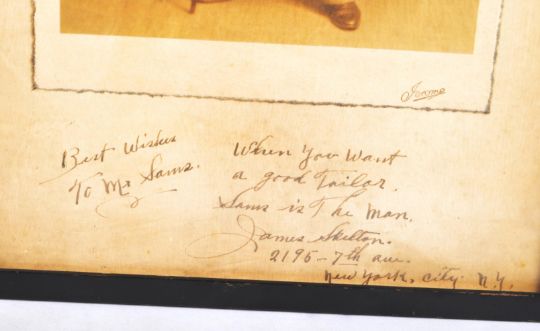 Best Wishes
To Mr Sams.
When You Want
a good Tailor.
Sams is The Man.
James Skelton.
2195 - 7th ave.
New York, city N.Y.